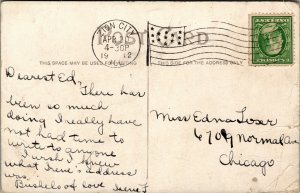 ZION CITY
APR
4-30P
19 12
ILL.
POST CARD
THIS SPACE MAY BE USED FOR
THIS SIDE FOR THE ADDRESS ONLY
Dearest Ed,
There has
been so much
doing I really have
not had time to
write to anyone
I wish I knew
what Irene's address
was.
Bushels of love Irene J
Miss Edna
6709 Normal Ave
Chicago